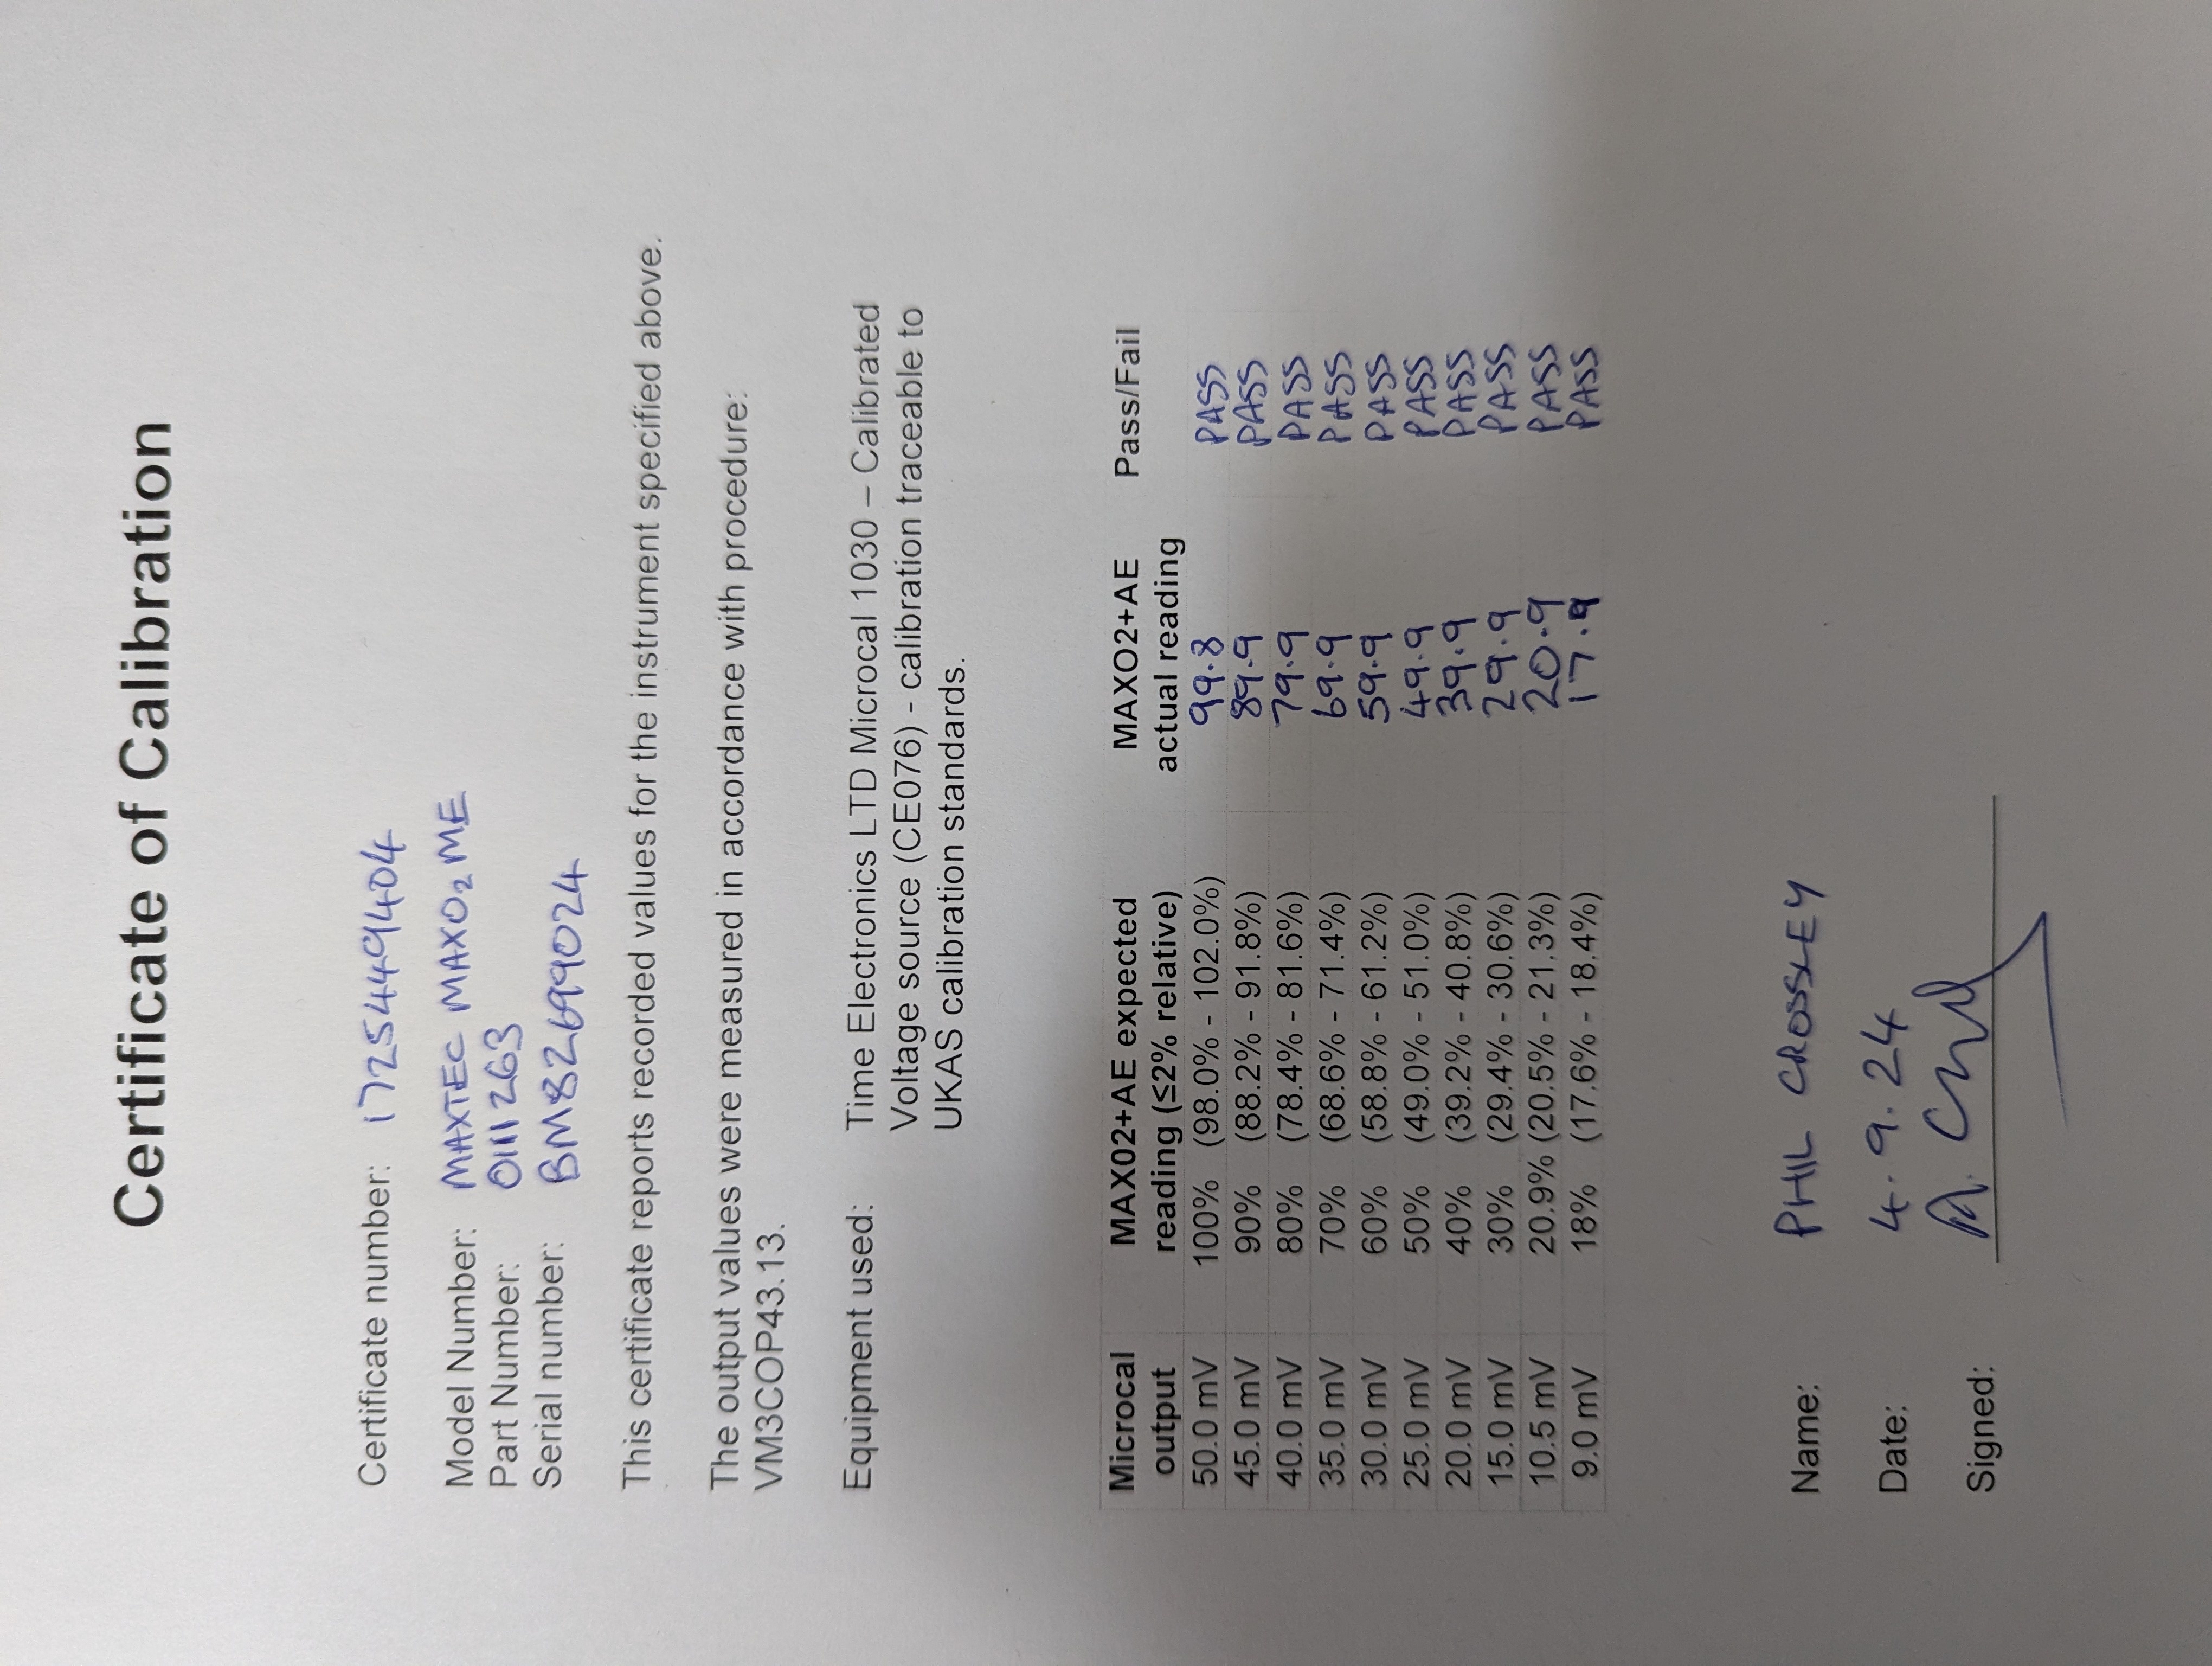 Certificate of Calibration
Certificate number: 1725449404
Model Number: MAXTEC MAXO2 ME
Part Number: 0111263
Serial number: BM82699024
This certificate reports recorded values for the instrument specified above.
The output values were measured in accordance with procedure:
VM3COP43.13.
Equipment used: Time Electronics LTD Microcal 1030 – Calibrated
Voltage source (CE076) - calibration traceable to
UKAS calibration standards.
Microcal output MAX02+AE expected reading (≤2% relative) MAXO2+AE actual reading Pass/Fail
50.0 mV 100% (98.0% - 102.0%) 99.8 PASS
45.0 mV 90% (88.2% - 91.8%) 89.9 PASS
40.0 mV 80% (78.4% - 81.6%) 79.9 PASS
35.0 mV 70% (68.6% - 71.4%) 69.9 PASS
30.0 mV 60% (58.8% - 61.2%) 59.9 PASS
25.0 mV 50% (49.0% - 51.0%) 49.9 PASS
20.0 mV 40% (39.2% - 40.8%) 39.9 PASS
15.0 mV 30% (29.4% - 30.6%) 29.9 PASS
10.5 mV 20.9% (20.5% - 21.3%) 20.9 PASS
9.0 mV 18% (17.6% - 18.4%) 17.9 PASS
Name: PHIL CROSSLEY
Date: 4.9.24
Signed: